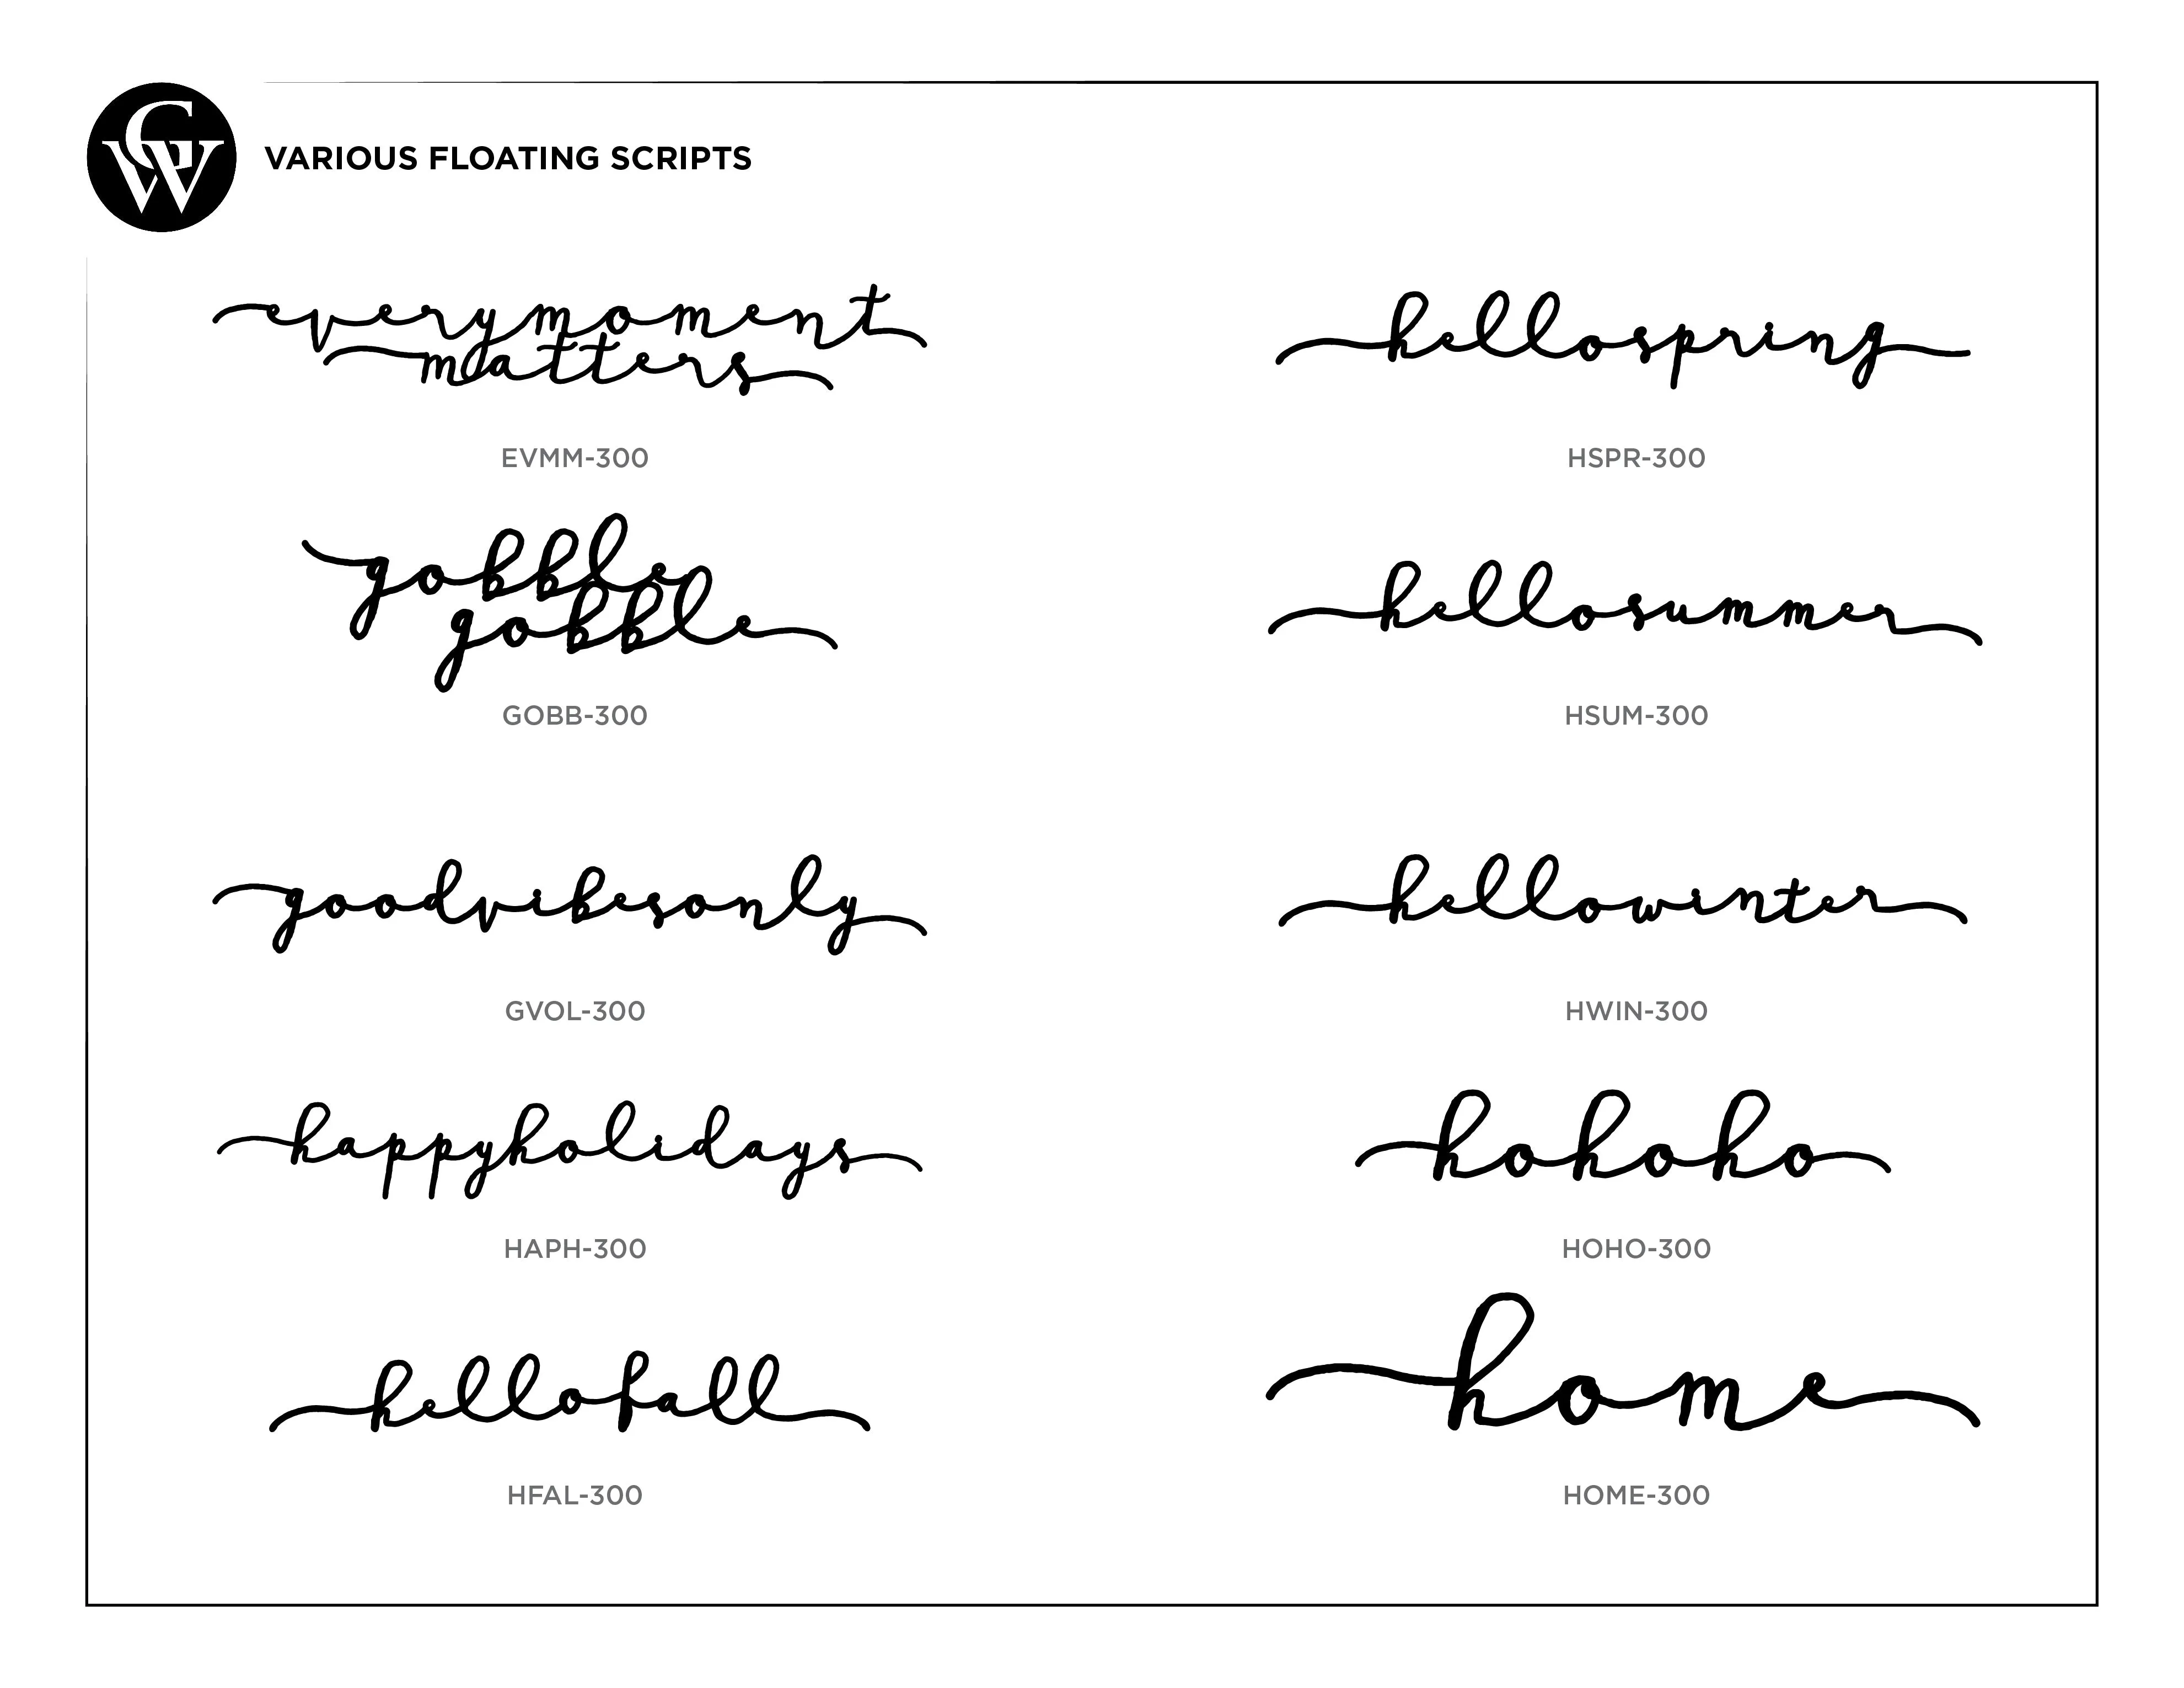 GW
VARIOUS FLOATING SCRIPTS
everymoment
matters
EVMM-300
hellospring
HSPR-300
gobble
gobble
GOBB-300
hellosummer
HSUM-300
goodvibesonly
GVOL-300
hellowinter
HWIN-300
happyholidays
HAPH-300
hohoho
HOHO-300
hellofall
HFAL-300
home
HOME-300